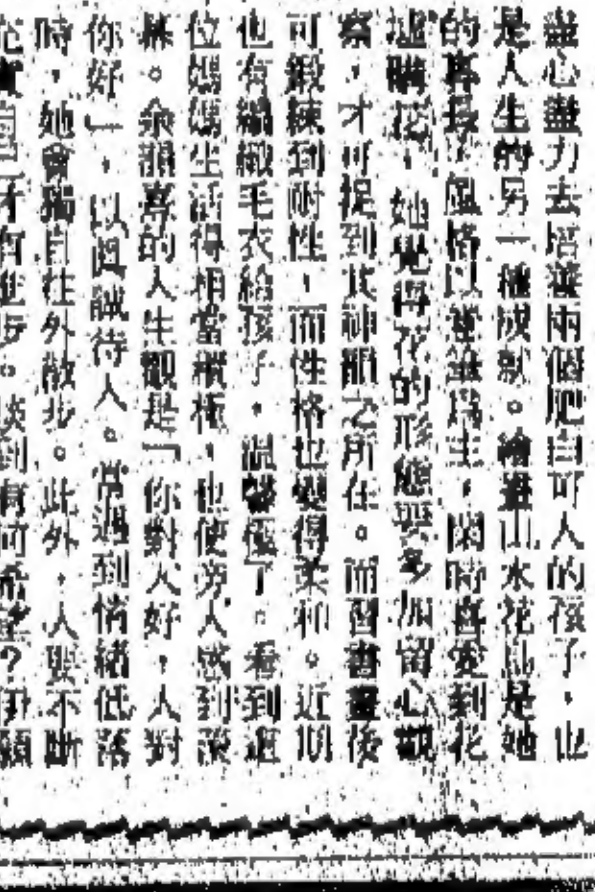 盡心盡力去培養兩個肥白可人的孩子，也
是人生的另一種成就。繪畫山水花鳥是她
的專長，風格以重筆為主，閑時喜愛到花
墟購花，她覺得花的形態要多加留心觀
察，才可捉到其神韻之所在。而習書畫後
可鍛練到耐性，而性格也變得柔和。近期
也有編緻毛衣給孩子，溫馨極了。看到這
位媽媽生活得相當積極，也使旁人感到
。余韻喜的人生觀是「你對人好，人對
你好」，以真誠待人。當遇到情緒低落
時，她會獨自往外散步。此外，人要不斷
才有進步。談到有何希望？伊願